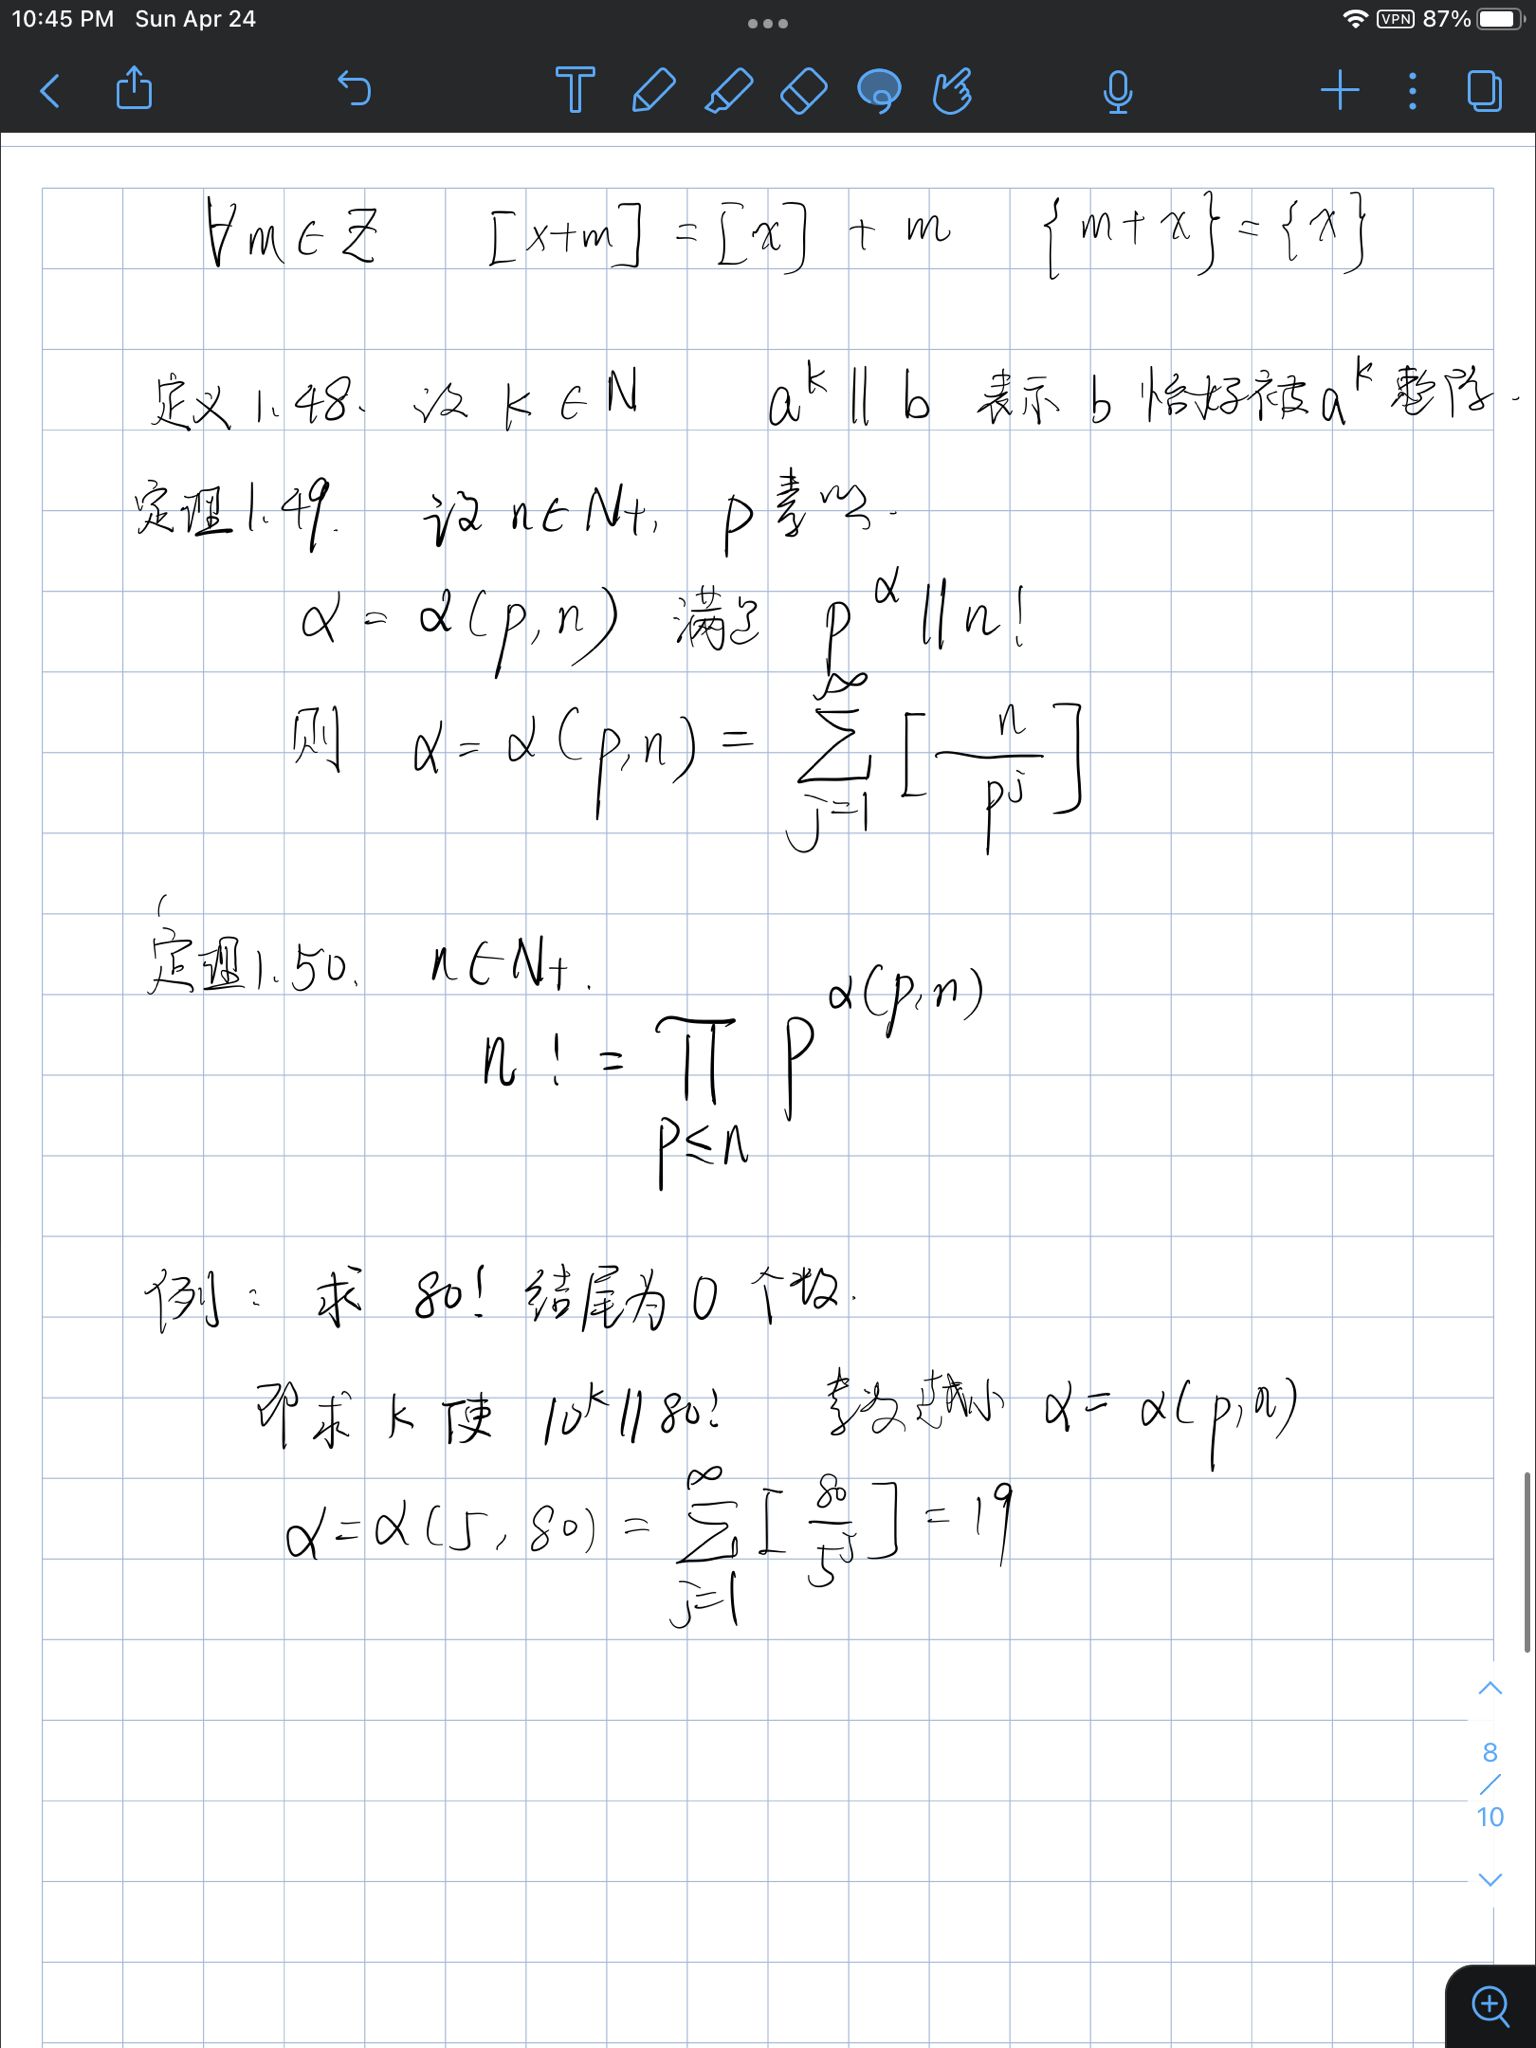 10:45 PM Sun Apr 24
VPN 87%
∀m∈Z [x+m]=[x]+m {m+x}={x}
定义1.48. 设 k∈N a^k || b 表示 b 恰好被 a^k 整除.
定理1.49. 设 n∈N+, p素数.
α = α(p,n) 满足 p^α || n!
则 α = α(p,n) = ∑_{j=1}^{∞} [n/p^j]
定理1.50. n∈N+.
n! = ∏_{p≤n} p^{α(p,n)}
例: 求 80! 结尾为 0 个数.
即求 k 使 10^k || 80! 素数越小 α = α(p,n)
α = α(5, 80) = ∑_{j=1}^{∞} [80/5^j] = 19
8
/
10